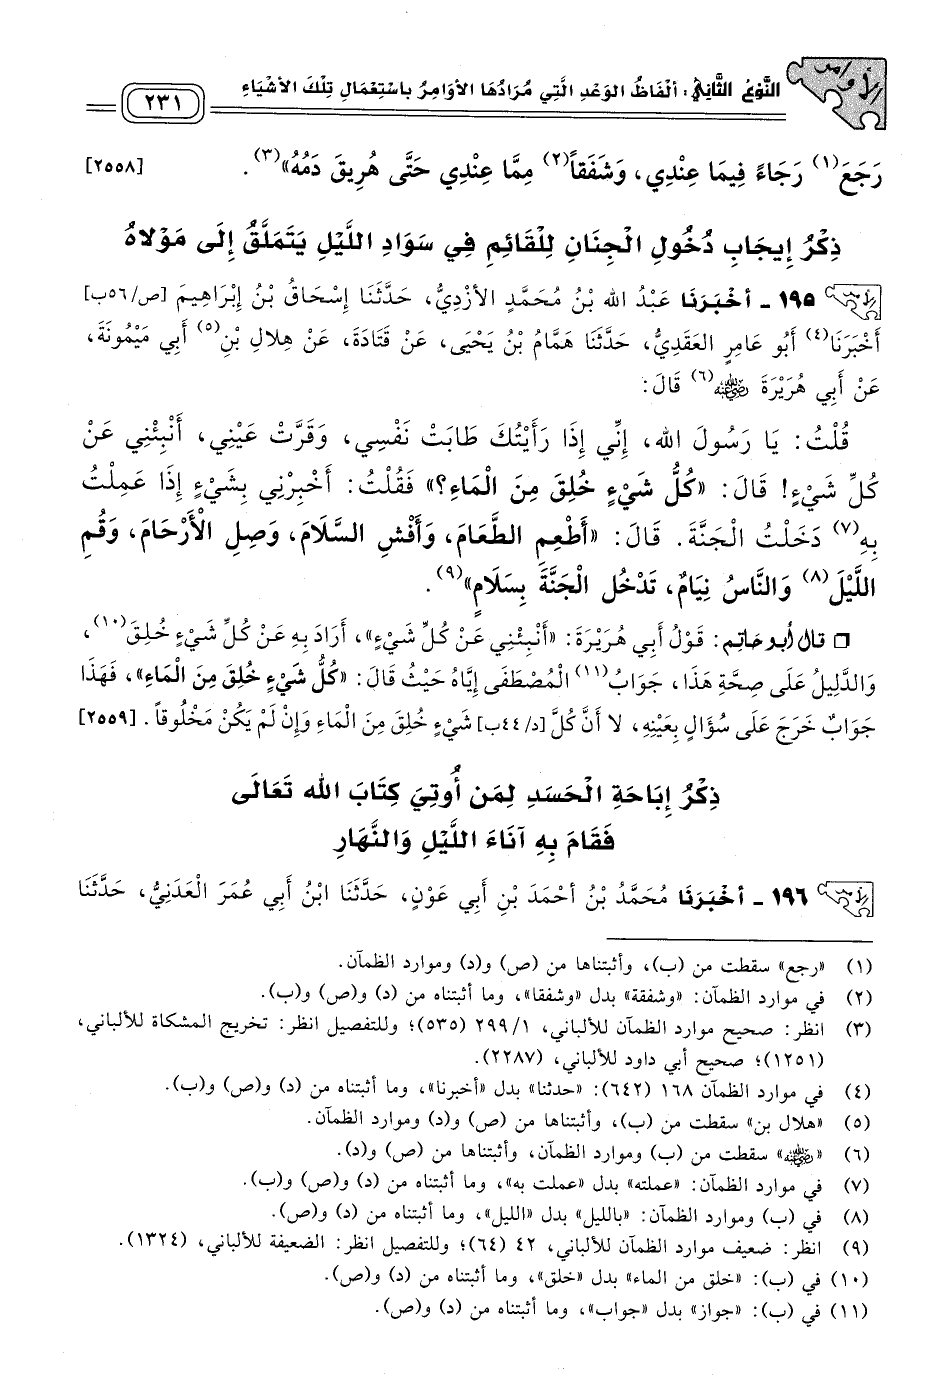 الأوامر
النَّوْعُ الثَّانِي: أَلْفَاظُ الوَعْدِ الَّتِي مُرَادُهَا الأَوَامِرُ بِاسْتِعْمَالِ تِلْكَ الأَشْيَاءِ
٢٣١
رَجَعَ(١) رَجَاءً فِيمَا عِنْدِي، وَشَفَقاً(٢) مِمَّا عِنْدِي حَتَّى هُرِيقَ دَمُهُ»(٣). [٢٥٥٨]
ذِكْرُ إِيجَابِ دُخُولِ الْجِنَانِ لِلْقَائِمِ فِي سَوَادِ اللَّيْلِ يَتَمَلَّقُ إِلَى مَوْلَاهُ
١٩٥ - أَخْبَرَنَا عَبْدُ الله بْنُ مُحَمَّدٍ الأَزْدِيُّ، حَدَّثَنَا إِسْحَاقُ بْنُ إِبْرَاهِيمَ [ص/٥٦ب]
أَخْبَرَنَا(٤) أَبُو عَامِرٍ العَقَدِيُّ، حَدَّثَنَا هَمَّامُ بْنُ يَحْيَى، عَنْ قَتَادَةَ، عَنْ هِلالِ بْنِ(٥) أَبِي مَيْمُونَةَ،
عَنْ أَبِي هُرَيْرَةَ رضي الله عنه(٦) قَالَ:
قُلْتُ: يَا رَسُولَ الله، إِنِّي إِذَا رَأَيْتُكَ طَابَتْ نَفْسِي، وَقَرَّتْ عَيْنِي، أَنْبِئْنِي عَنْ
كُلِّ شَيْءٍ! قَالَ: «كُلُّ شَيْءٍ خُلِقَ مِنَ الْمَاءِ؟» فَقُلْتُ: أَخْبِرْنِي بِشَيْءٍ إِذَا عَمِلْتُ
بِهِ(٧) دَخَلْتُ الْجَنَّةَ. قَالَ: «أَطْعِمِ الطَّعَامَ، وَأَفْشِ السَّلَامَ، وَصِلِ الْأَرْحَامَ، وَقُمِ
اللَّيْلَ(٨) وَالنَّاسُ نِيَامٌ، تَدْخُلِ الْجَنَّةَ بِسَلَامٍ»(٩).
□ قال أبو حاتم: قَوْلُ أَبِي هُرَيْرَةَ: «أَنْبِئْنِي عَنْ كُلِّ شَيْءٍ»، أَرَادَ بِهِ عَنْ كُلِّ شَيْءٍ خُلِقَ(١٠)،
وَالدَّلِيلُ عَلَى صِحَّةِ هَذَا، جَوَابُ(١١) الْمُصْطَفَى إِيَّاهُ حَيْثُ قَالَ: «كُلُّ شَيْءٍ خُلِقَ مِنَ الْمَاءِ»، فَهَذَا
جَوَابٌ خَرَجَ عَلَى سُؤَالٍ بِعَيْنِهِ، لا أَنَّ كُلَّ [د/٤٤ب] شَيْءٍ خُلِقَ مِنَ الْمَاءِ وَإِنْ لَمْ يَكُنْ مَخْلُوقاً. [٢٥٥٩]
ذِكْرُ إِبَاحَةِ الْحَسَدِ لِمَن أُوتِيَ كِتَابَ الله تَعَالَى
فَقَامَ بِهِ آنَاءَ اللَّيْلِ وَالنَّهَارِ
١٩٦ - أَخْبَرَنَا مُحَمَّدُ بْنُ أَحْمَدَ بْنِ أَبِي عَوْنٍ، حَدَّثَنَا ابْنُ أَبِي عُمَرَ الْعَدَنِيُّ، حَدَّثَنَا
(١) «رجع» سقطت من (ب)، وأثبتناها من (ص) و(د) وموارد الظمآن.
(٢) في موارد الظمآن: «وشفقة» بدل «وشفقا»، وما أثبتناه من (د) و(ص) و(ب).
(٣) انظر: صحيح موارد الظمآن للألباني، ١/ ٢٩٩ (٥٣٥)؛ وللتفصيل انظر: تخريج المشكاة للألباني،
(١٢٥١)؛ صحيح أبي داود للألباني، (٢٢٨٧).
(٤) في موارد الظمآن ١٦٨ (٦٤٢): «حدثنا» بدل «أخبرنا»، وما أثبتناه من (د) و(ص) و(ب).
(٥) «هلال بن» سقطت من (ب)، وأثبتناها من (ص) و(د) وموارد الظمآن.
(٦) «رضي الله عنه» سقطت من (ب) وموارد الظمآن، وأثبتناها من (ص) و(د).
(٧) في موارد الظمآن: «عملته» بدل «عملت به»، وما أثبتناه من (د) و(ص) و(ب).
(٨) في (ب) وموارد الظمآن: «بالليل» بدل «الليل»، وما أثبتناه من (د) و(ص).
(٩) انظر: ضعيف موارد الظمآن للألباني، ٤٢ (٦٤)؛ وللتفصيل انظر: الضعيفة للألباني، (١٣٢٤).
(١٠) في (ب): «خلق من الماء» بدل «خلق»، وما أثبتناه من (د) و(ص).
(١١) في (ب): «جواز» بدل «جواب»، وما أثبتناه من (د) و(ص).